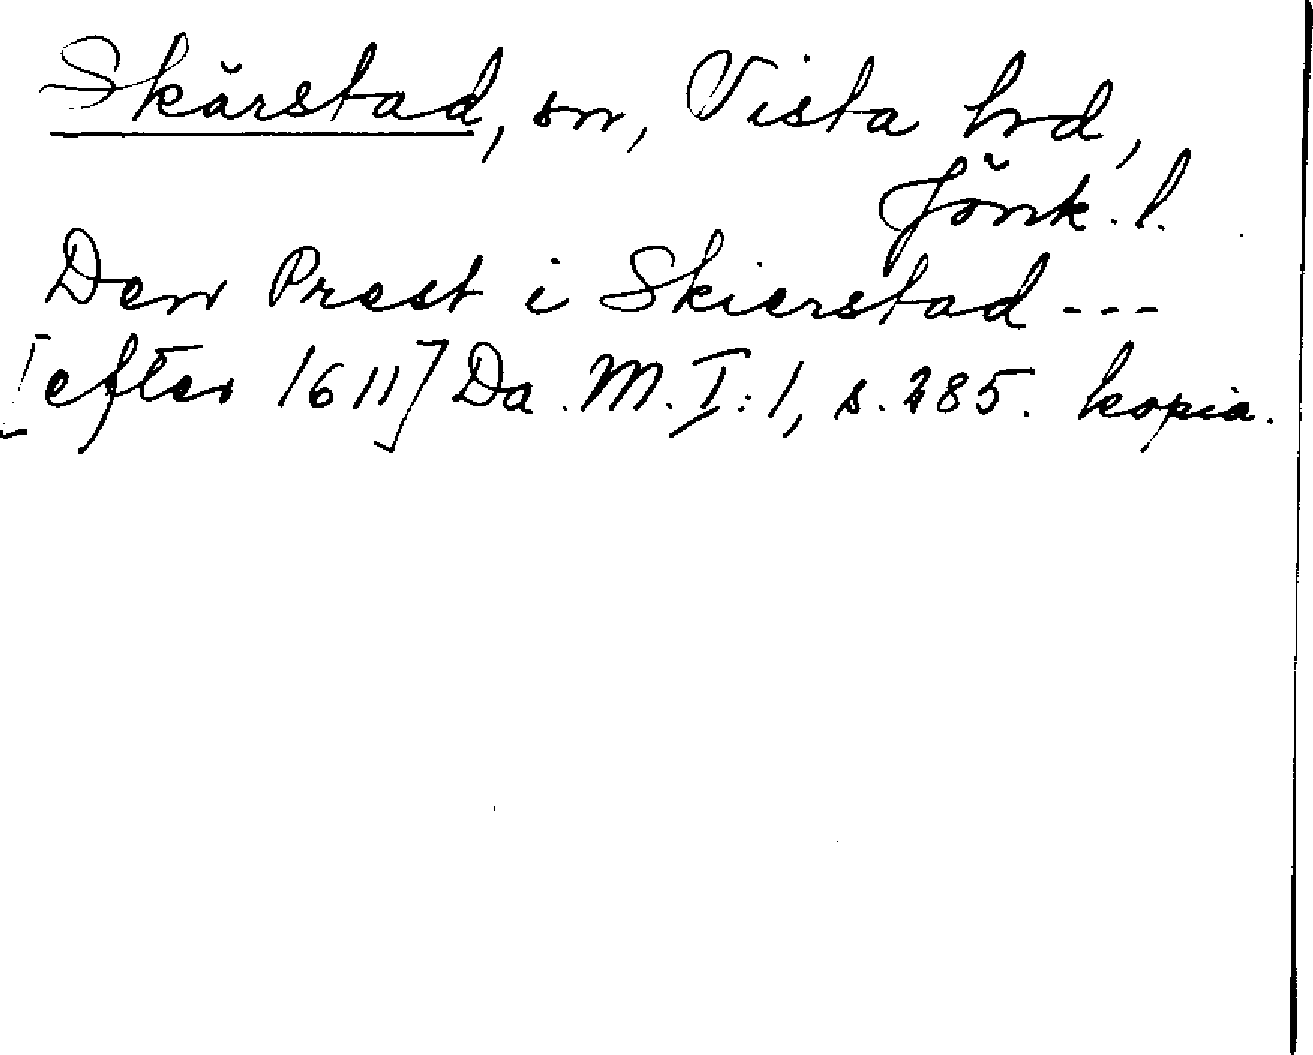 Skärstad, sn, Vista hrd,
Jönk. l.
Den Prest i Skierstad ---
[efter 1611] Da. M. I:1, s. 285. kopia.